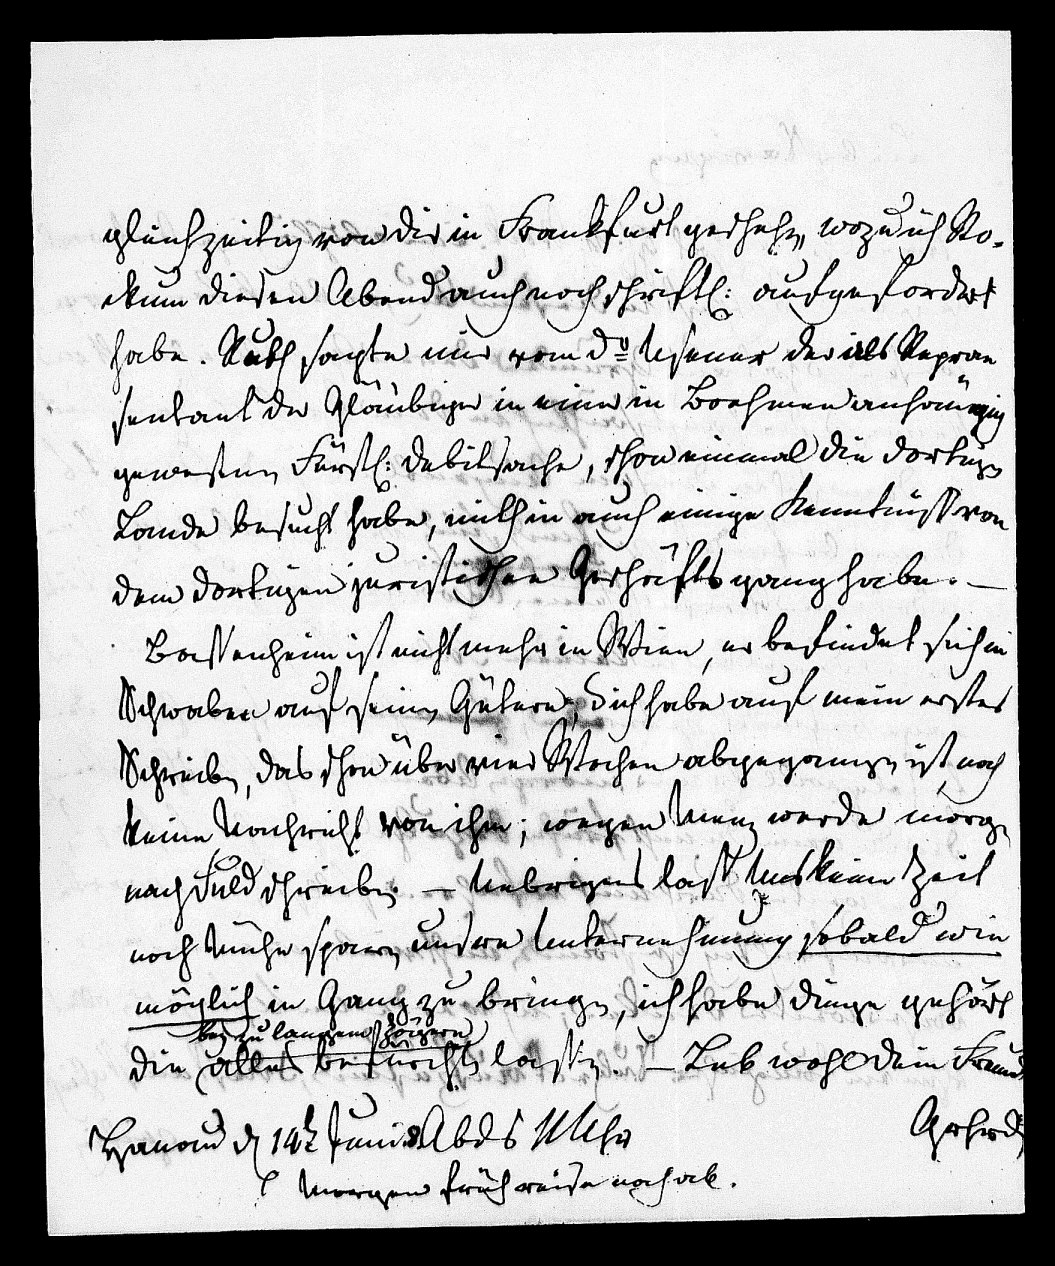 gleichzeitig von dir in Frankfurt gescheh, wozu ich Ko-
kum diesen Abend auch noch schriftl: aufgefordert
habe. Ruth sagte mir vom Dr Usener der als Reprae
sentant der Gläubiger in einer in Boehmen anhängig
gewesenen Fürstl: Debitsache, schon einmal die dortigen
Lande besucht habe, mithin auch einige Kenntniss von
dem dortigen juristischen Geschäftsgang habe. —
Bassenheim ist nicht mehr in Wien, er befindet sich in
Schwaben auf seinen Gütern; ich habe auf mein erstes
Schreiben, das schon über vier Wochen abgegangen ist, noch
keine Nachricht von ihm; wegen werde morgen
nach Fuld schreiben. — Uebrigens lass uns keine Zeit
noch Mühe sparen, unsere Unternehmung sobald wie
möglich in Gang zu bringen, ich habe dinge gehört
bey zu langem Zögern
die alles befürchten lassen. — Leb wohl dein Freund
Gerhrd
Hanau d 14t Juni Abds 11 Uhr
Morgen früh reise nach ab.